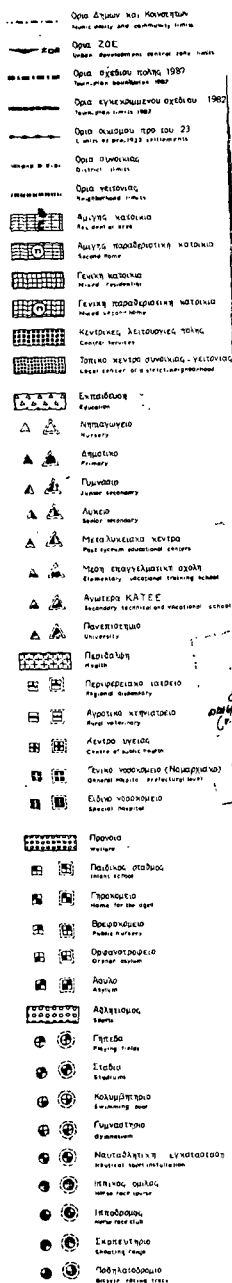 Ορια Δημων και Κοινοτητων
Municipality and community limits
ΖΟΕ
Ορια ΖΟΕ
Urban development control zone limits
Ορια σχεδιου πολης 1987
Town-plan boundaries 1987
Ορια εγκεκριμενου σχεδιου 1982
Town-plan limits 1982
Ορια οικισμου προ του 23
Limits of pre-1923 settlements
Ορια συνοικιας
District limits
Ορια γειτονιας
Neighborhood limits
Αμιγης κατοικια
Residential area
Αμιγης παραθεριστικη κατοικια
Second home
Γενικη κατοικια
Mixed residential
Γενικη παραθεριστικη κατοικια
Mixed second home
Κεντρικες λειτουργιες πολης
Center Services
Τοπικο κεντρο συνοικιας - γειτονιας
Local center of district-neighborhood
Εκπαιδευση
Education
Νηπιαγωγειο
Nursery
Δημοτικο
Primary
Γυμνασιο
Junior secondary
Λυκειο
Senior secondary
Μεταλυκειακα κεντρα
Post lyceum educational centers
Μεση επαγγελματικη σχολη
Elementary vocational training school
Ανωτερα ΚΑΤΕΕ
Secondary technical and vocational school
Πανεπιστημιο
University
Περιθαλψη
Health
Περιφερειακο ιατρειο
Regional dispensary
Αγροτικο κτηνιατρειο
Rural veterinary
Κεντρο υγειας
Centre of public health
Γενικο νοσοκομειο (Νομαρχιακο)
General hospital prefectural level
Ειδικο νοσοκομειο
Special hospital
Προνοια
Welfare
Παιδικος σταθμος
Infant school
Γηροκομειο
Home for the aged
Βρεφοκομειο
Public nursery
Ορφανοτροφειο
Orphan asylum
Ασυλο
Asylum
Αθλητισμος
Sports
Γηπεδα
Playing fields
Σταδιο
Stadiums
Κολυμβητηριο
Swimming pool
Γυμναστηριο
Gymnasium
Ναυταθλητικη εγκατασταση
Nautical sport installation
Ιππικος ομιλος
Ιπποδρομος
Σκοπευτηριο
Shooting range
Ποδηλατοδρομιο
Bicycle racing track